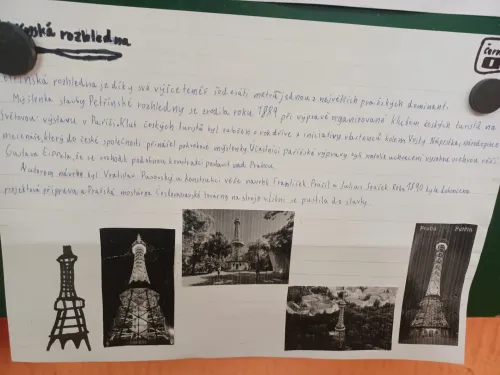 rozhledna
Petřínská rozhledna je díky své výšce téměř šedesáti metrů jednou z největších pražských dominant.
Myšlenka stavby Petřínské rozhledny se zrodila roku 1889 při výpravě organizované Klubem českých turistů na
Světovou výstavu v Paříži. Klub českých turistů byl založen rok dříve z iniciativy vlastenců kolem Vojty Náprstka,
mecenáše, který do české společnosti přinášel pokrokové myšlenky. Účastníci pařížské výpravy byli natolik
Gustava Eiffela, že se rozhodli podobnou konstrukci postavit nad Prahou.
Autorem návrhu byl Vratislav Pasovský a konstrukci věže navrhli František Prášil a Julius Souček. Roku 1890 byla
projektová příprava a Pražská mostárna Českomoravské továrny na stroje se pustila do stavby.
Praha Petřín